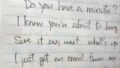 Do you have a minute?
I know you're about to hang
Sure it can wait what's up
I just got an email from me